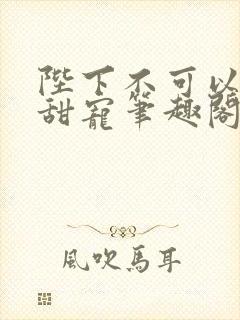 陛下不可以
甜寵筆趣閣
風吹馬耳